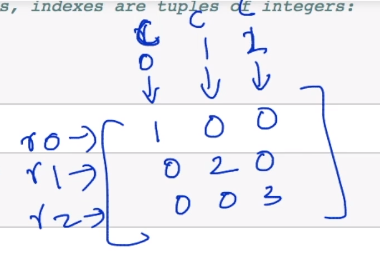 s, indexes are tuples of integers:
C C C
0 1 2
r0→ 1 0 0
r1→ 0 2 0
r2→ 0 0 3